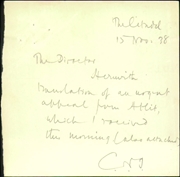 The Citadel
15 Nov. 98
The Director
Herewith
translation of an urgent
appeal from
which I received
this morning (also attached)